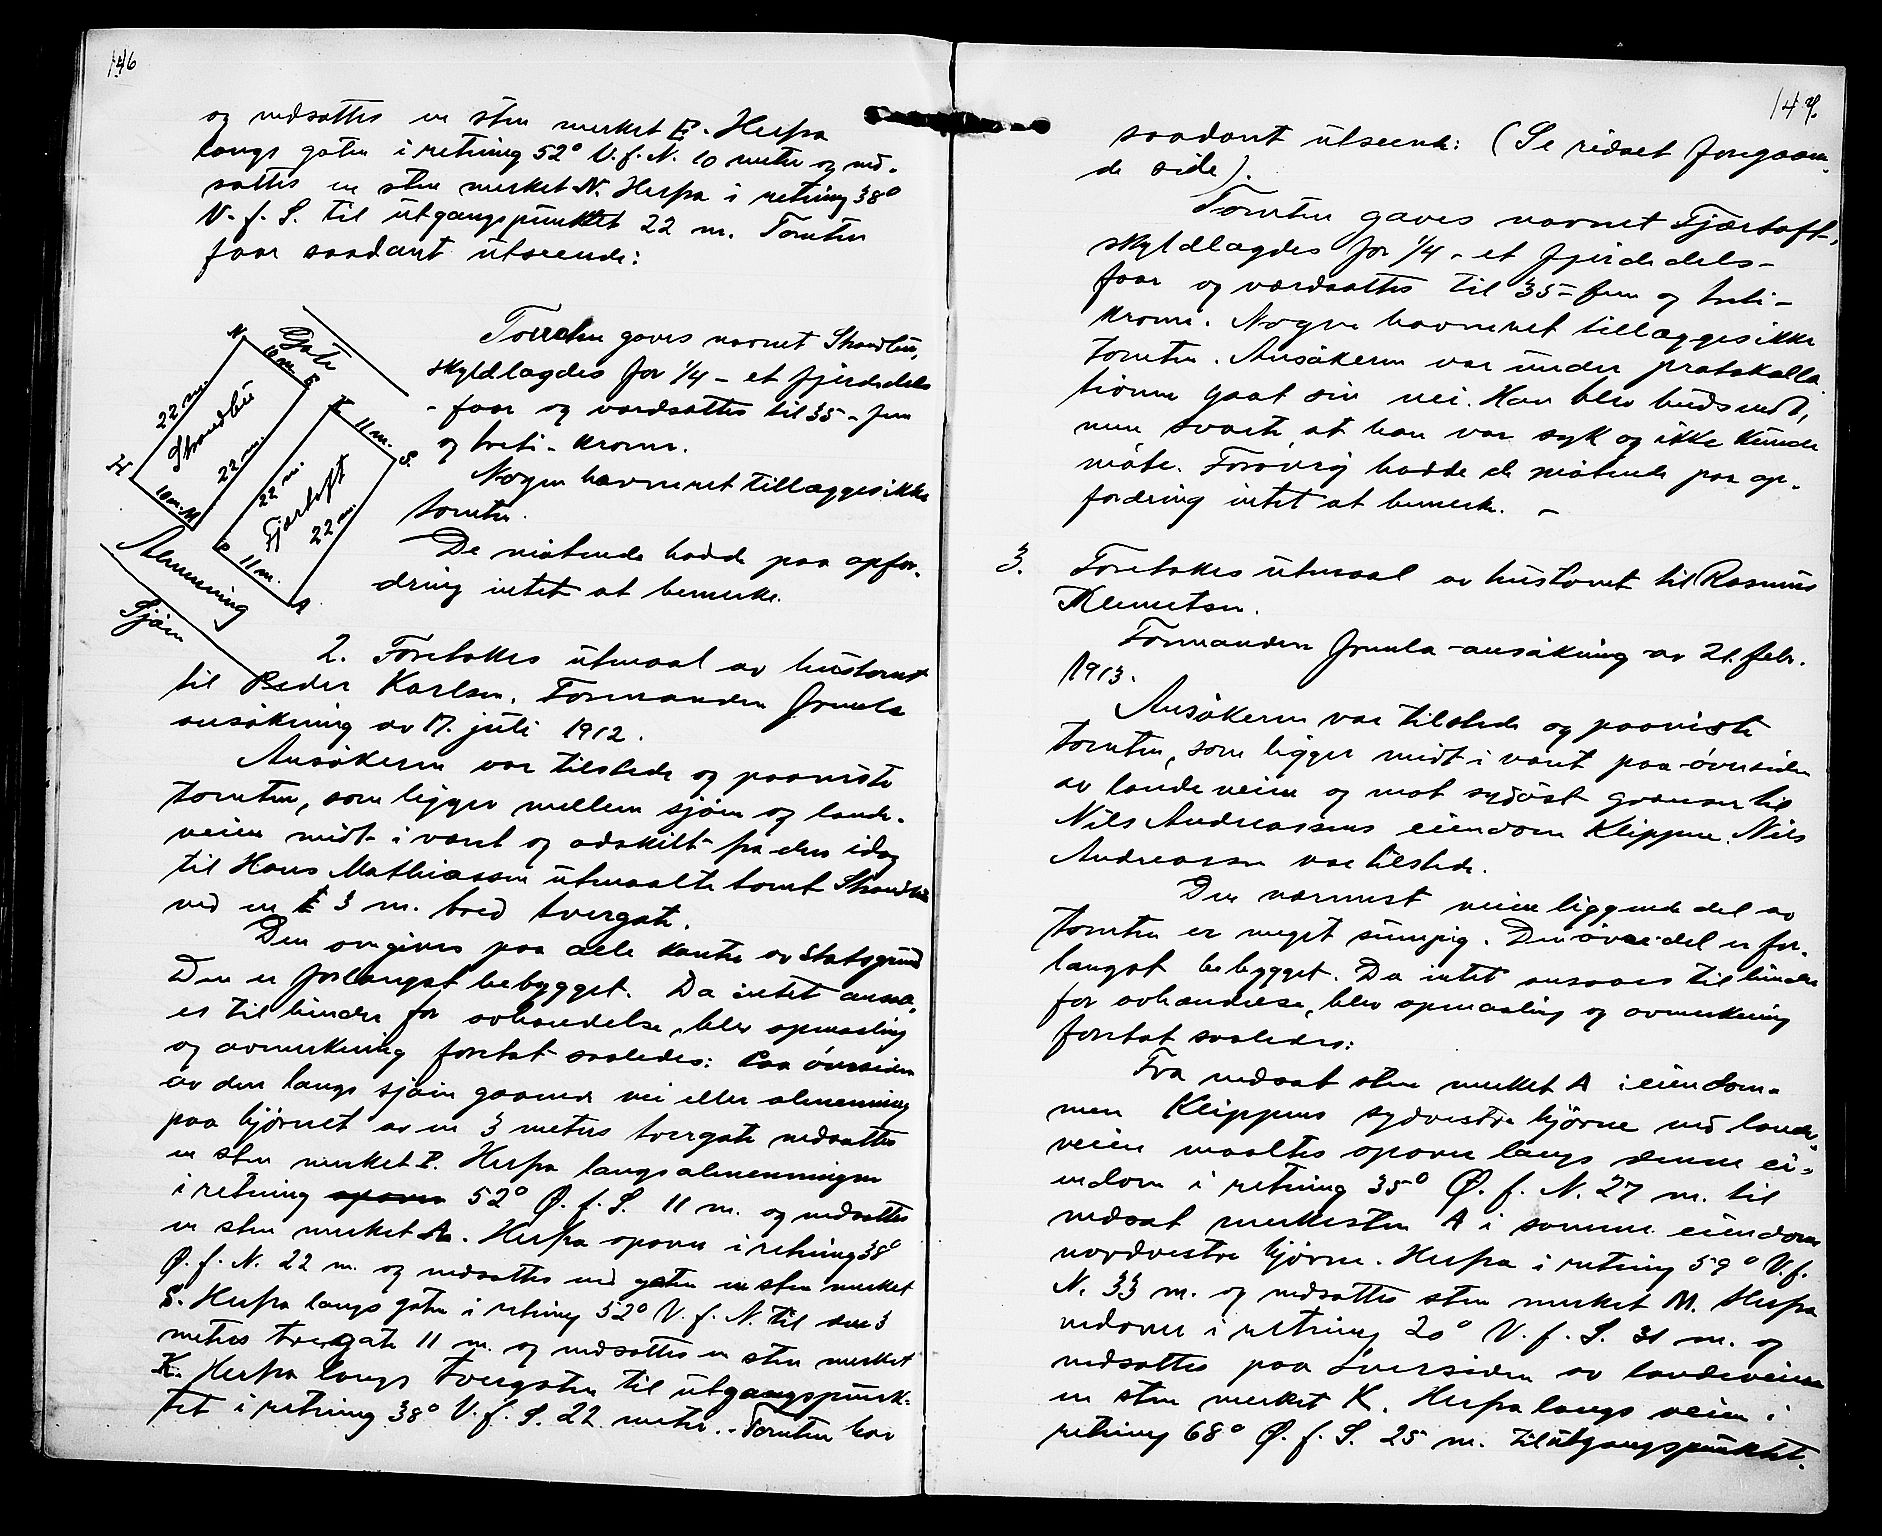 146
og nedsattes en sten merket E. Herfra
langs gaten i retning 52° V.f.N. 10 meter og ned-
sattes en sten merket N. Herfra i retning 38°
V. f. S. til utgangspunktet 22 m. Tomten
faar saadant utseende:
Tomten gaves navnet Strandbu,
skyldlagdes for 1/4 - et fjerdedels
- faar og værdsattes til 35 - fem
og treti - kroner.
Nogen havneret tillægges ikke
tomten.
De møtende hadde paa opfor-
dring intet at bemerke.
Gate
N.
10 m.
E
22 m.
Strandbu
22 m.
H
10 m.
M
K
11 m.
S.
22 m.
Fjærtoft
22 m.
P
11 m.
A
Almenning
Sjøen
2. Foretokes utmaal av hustomt
til Peder Karlsen. Formanden frmla
ansøkning av 17. juli 1912.
Ansøkeren var tilstede og paaviste
tomten, som ligger mellem sjøen og lande-
veien midt i været og adskilt fra den idag
til Hans Mathiassen utmaalte tomt Strandbu
ved en 3 m. bred tvergate.
Den omgives paa alle kanter av Statsgrund
Den er forlangst bebygget. Da intet ansaa-
es til hinder for avhændelse, blev opmaaling
og avmerkning foretat saaledes: Paa översiden
av den langs sjøen gaaende vei eller almenning
paa hjørnet av en 3 meters tvergate nedsattes
en sten merket P. Herfra langs almenningen
i retning opover 52° Ø. f. S. 11 m. og nedsattes
en sten merket A. Herfra opover i retning 38°
Ø. f. N. 22 m. og nedsattes ved gaten en sten merket
S. Herfra langs gaten i retning 52° V. f. N. til den 3
meters tvergate 11 m. og nedsattes en sten merket
K. Herfra langs tvergaten til utgangspunk-
tet i retning 38° V. f. S. 22 meter. - Tomten har
147.
saadant utseende: (Se ridset foregaaen-
de side).
Tomten gaves navnet Fjærtoft,
skyldlagdes for 1/4 - et fjerdedels -
faar og værdsattes til 35 - fem og treti -
kroner. Nogen havneret tillægges ikke
tomten. Ansøkeren var under protokolla-
tionen gaat sin vei. Han blev budsendt,
men svarte, at han var syk og ikke kunde
møte. Forøvrig hadde de møtende paa op-
fordring intet at bemerke. -
3. Foretokes utmaal av hustomt til Rasmus
Klemetsen.
Formanden frmla ansøkning av 21. febr.
1913.
Ansøkeren var tilstede og paaviste
tomten, som ligger midt i været paa översiden
av landeveien og mot sydöst grænser til
Nils Andreassens eiendom Klippen. Nils
Andreassen var tilstede.
Den nærmest veien liggende del av
tomten er meget sumpig. Den övre del er for-
langst bebygget. Da intet ansaaes til hinder
for avhændelse, blev opmaaling og avmerkning
foretat saaledes:
Fra nedsat sten merket A i eiendom-
men Klippens sydvestre hjørne ved lande-
veien maaltes opover langs denne ei-
endom i retning 35° Ø. f. N. 27 m. til
nedsat merkesten A i samme eiendoms
nordvestre hjørne. Herfra i retning 59° V. f.
N. 33 m. og nedsattes sten merket M. Herfra
nedover i retning 20° V. f. S. 31 m. og
nedsattes paa översiden av landeveien
en sten merket K. Herfra langs veien i
retning 68° Ø. f. S. 25 m. til utgangspunktet.